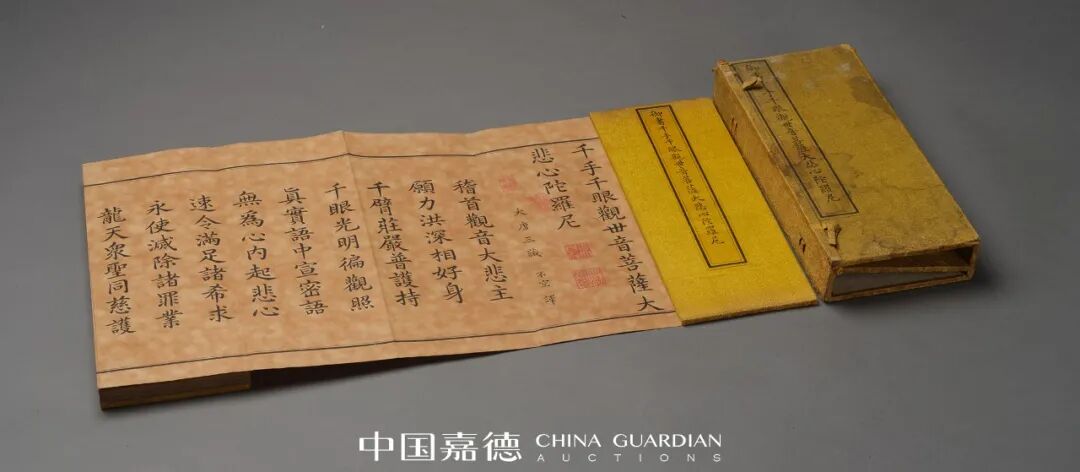 御千眼觀世音菩薩大悲心陀羅尼
御書千手千眼觀世音菩薩大悲心陀羅尼
千手千眼觀世音菩薩大
悲心陀羅尼
大唐三藏 不空譯
稽首觀音大悲主
願力洪深相好身
千臂莊嚴普護持
千眼光明徧觀照
眞實語中宣密語
無為心內起悲心
速令滿足諸希求
永使滅除諸罪業
龍天衆聖同慈護
中国嘉德 CHINA GUARDIAN
AUCTIONS